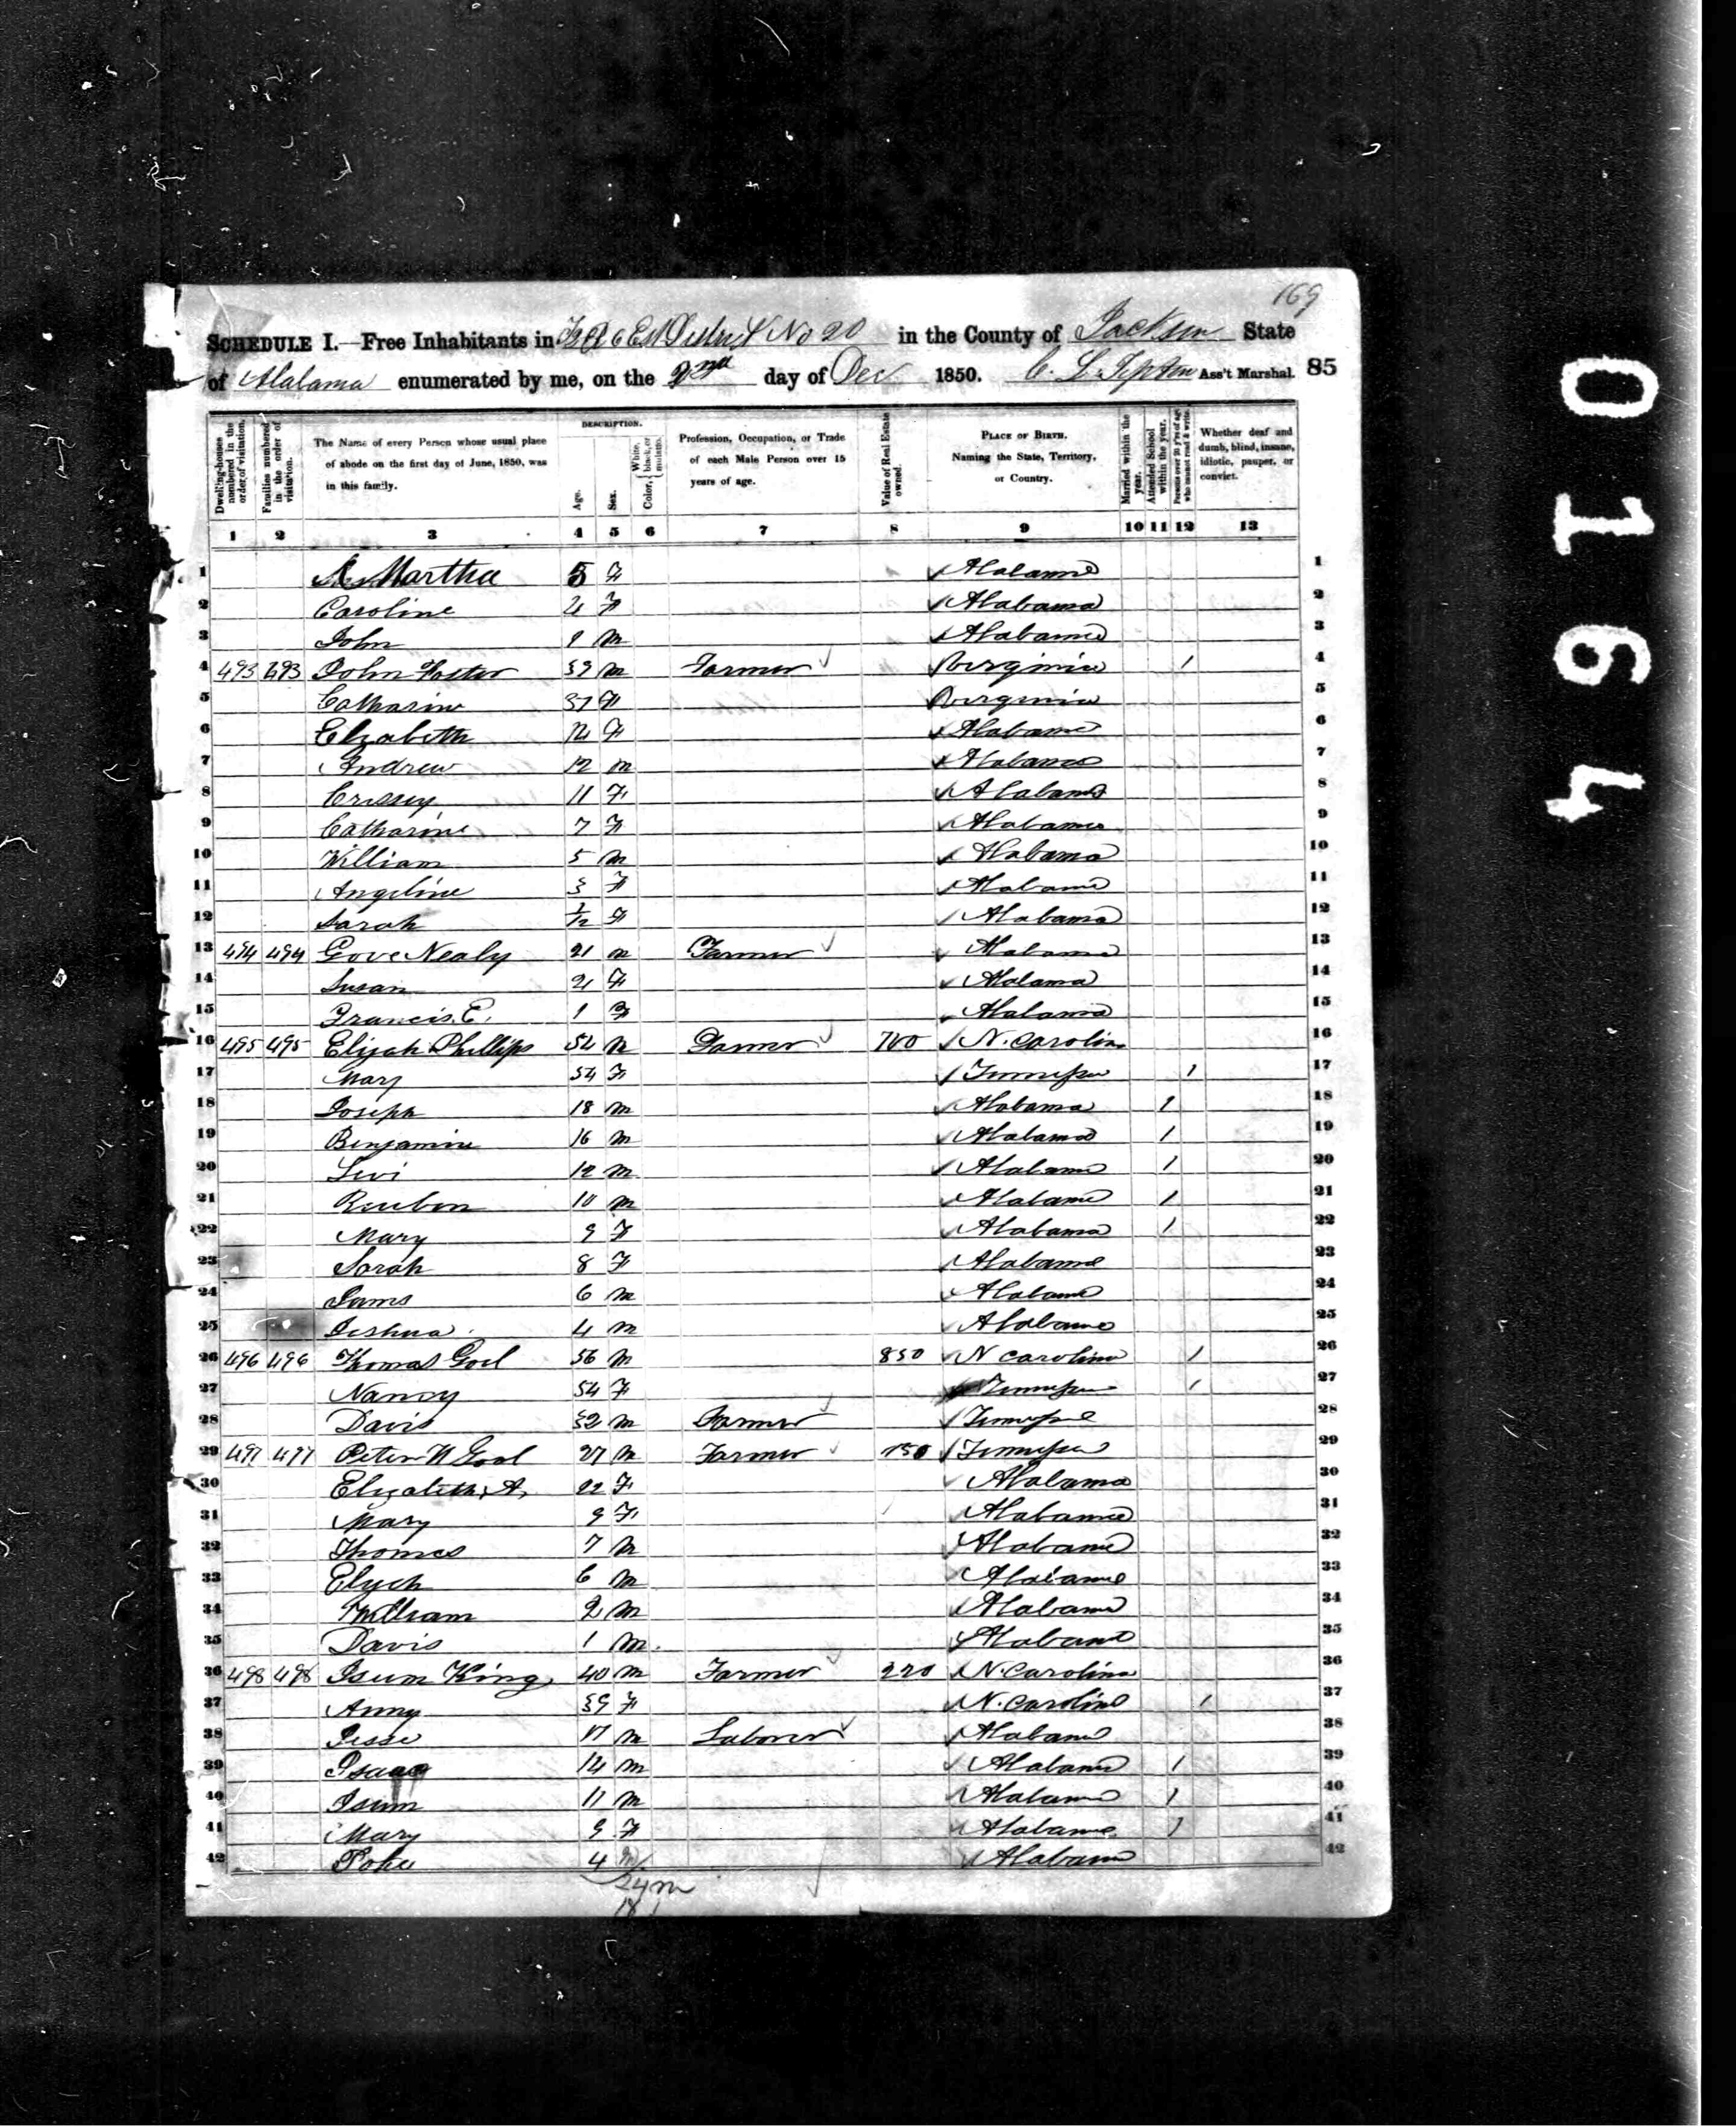 169
SCHEDULE I.—Free Inhabitants in District No 20 in the County of Jackson State
of Alabama enumerated by me, on the 2nd day of Dec 1850. C. L. Tipton Ass't Marshal. 85
Dwelling-houses numbered in the order of visitation.
Families numbered in the order of visitation.
The Name of every Person whose usual place of abode on the first day of June, 1850, was in this family.
DESCRIPTION.
Age.
Sex.
Color, White, black, or mulatto.
Profession, Occupation, or Trade of each Male Person over 15 years of age.
Value of Real Estate owned.
PLACE OF BIRTH. Naming the State, Territory, or Country.
Married within the year.
Attended School within the year.
Persons over 20 y'rs of age who cannot read & write.
Whether deaf and dumb, blind, insane, idiotic, pauper, or convict.
1 2 3 4 5 6 7 8 9 10 11 12 13
1 Martha 5 F Alabama 1
2 Caroline F Alabama 2
3 John 1 M Alabama 3
4 493 493 John Foster 39 M Farmer Virginia 1 4
5 Catharine 37 F Virginia 5
6 Elizabeth 14 F Alabama 6
7 Andrew 12 M Alabama 7
8 Crissey 11 F Alabama 8
9 Catharine 7 F Alabama 9
10 William 5 M Alabama 10
11 Angeline 3 F Alabama 11
12 Sarah F Alabama 12
13 494 494 Gove Nealy 21 M Farmer Alabama 13
14 Susan 21 F Alabama 14
15 Francis E. 1 F Alabama 15
16 495 495 Elijah Phillips 54 M Farmer 700 N. Carolina 16
17 Mary 34 F Tennessee 1 17
18 Joseph 18 M Alabama 1 18
19 Benjamine 16 M Alabama 1 19
20 Levi 12 M Alabama 1 20
21 Reuben 10 M Alabama 1 21
22 Mary 9 F Alabama 1 22
23 Sarah 8 F Alabama 23
24 James 6 M Alabama 24
25 Joshua 4 M Alabama 25
26 496 496 Thomas 56 M 850 N Carolina 1 26
27 Nancy 54 F Tennessee 1 27
28 Davis 32 M Farmer Tennessee 28
29 497 497 Peter 27 M Farmer 150 Tennessee 29
30 Elizabeth A. 22 F Alabama 30
31 Mary 9 F Alabama 31
32 Thomas 7 M Alabama 32
33 6 M Alabama 33
34 William 2 M Alabama 34
35 Davis 1 M Alabama 35
36 498 498 Isum King 40 M Farmer 220 N. Carolina 36
37 Anny 39 F N. Carolina 1 37
38 Jesse 17 M Laborer Alabama 38
39 Isaac 14 M Alabama 1 39
40 Isum 11 M Alabama 1 40
41 Mary 9 F Alabama 1 41
42 Poke 4 M Alabama 42
24 m
18
0164